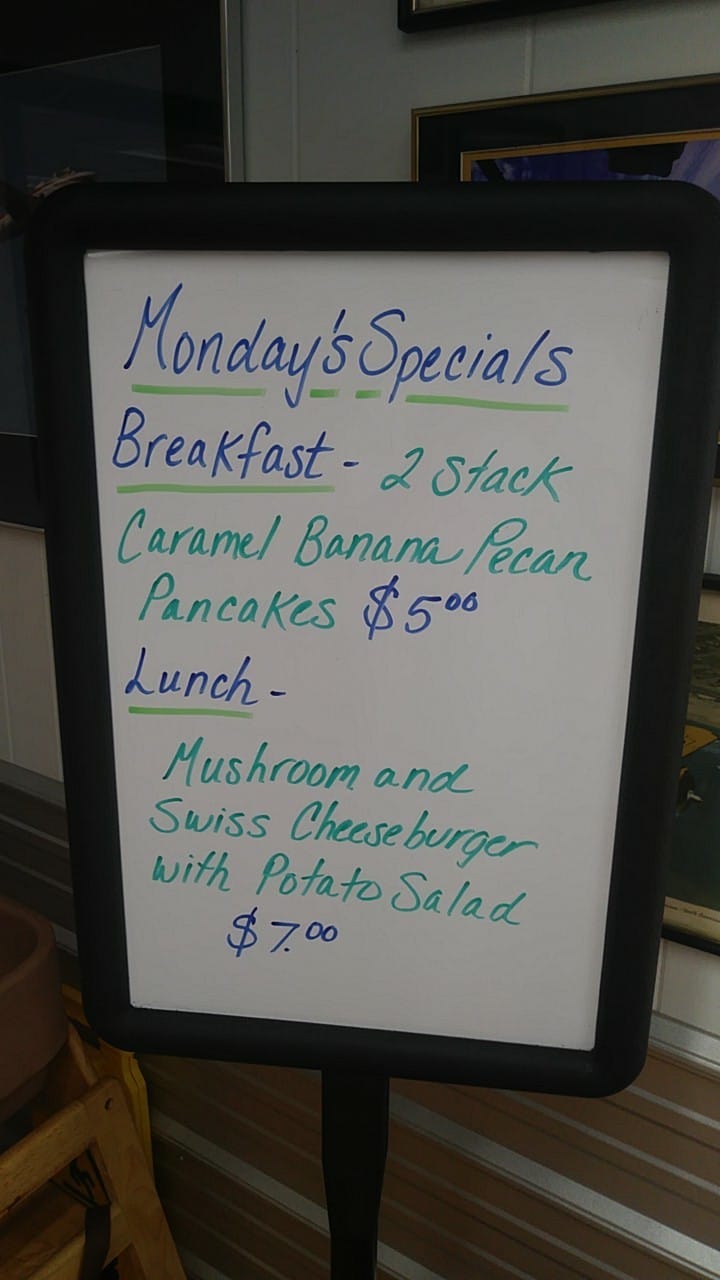 Monday's Specials
Breakfast - 2 stack
Caramel Banana Pecan
Pancakes $5.00
Lunch -
Mushroom and
Swiss Cheeseburger
with Potato Salad
$7.00